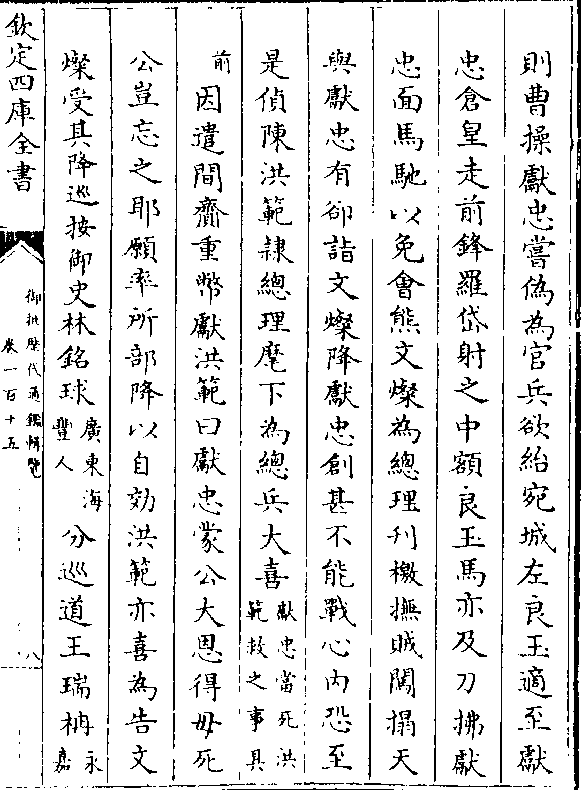 則曹操獻忠嘗偽為官兵欲紿宛城左良玉適至獻
忠倉皇走前鋒羅岱射之中額良玉馬亦及刀拂獻
忠面馬馳以免會熊文燦為總理刋檄撫賊闖塌天
與獻忠有卻詣文燦降獻忠創甚不能戰心内恐至
是偵陳洪範隸總理麾下為總兵大喜獻忠當死洪範救之事具
前因遣間齎重幣獻洪範曰獻忠蒙公大恩得毋死
公豈忘之耶願率所部降以自効洪範亦喜為告文
燦受其降巡按御史林銘球廣東海豐人分巡道王瑞柟永嘉
欽定四庫全書
御批歴代通鑑輯覽
卷一百十五
八